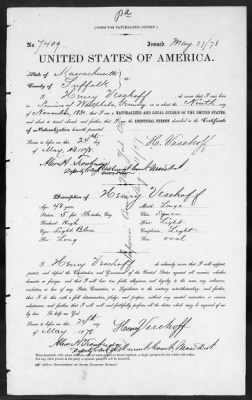 [FORM FOR NATURALIZED CITIZEN.]
No 7409 Issued May 27/78
UNITED STATES OF AMERICA.
State of Massachusetts
County of Suffolk
I, Henry Vieshoff, do swear that I was born
in Germany on or about the Ninth day
of November, 1831, that I am a NATURALIZED AND LOYAL CITIZEN OF THE UNITED STATES,
and about to travel abroad; and further, that I am the IDENTICAL PERSON described in the Certificate
of Naturalization herewith presented.
Sworn to before me this 24th day
of May, 1878
Description of Henry Vieshoff
Age:
Stature: 5 ft Inches, Eng.
Forehead: High
Eyes: Light Blue
Nose: Long
Mouth: Large
Chin: Square
Hair: Light
Complexion: Light
Face: oval
I, Henry Vieshoff do solemnly swear that I will support,
protect, and defend the Constitution and Government of the United States against all enemies, whether
domestic or foreign; and that I will bear true faith, allegiance, and loyalty to the same, any ordinance,
resolution, or law of any State, Convention, or Legislature to the contrary notwithstanding; and further,
that I do this with a full determination, pledge, and purpose, without any mental reservation or evasion
whatsoever; and further, that I will well and faithfully perform all the duties which may be required of me
by law. So help me God.
Sworn to before me this 24th day
of May 1878
Henry Vieshoff